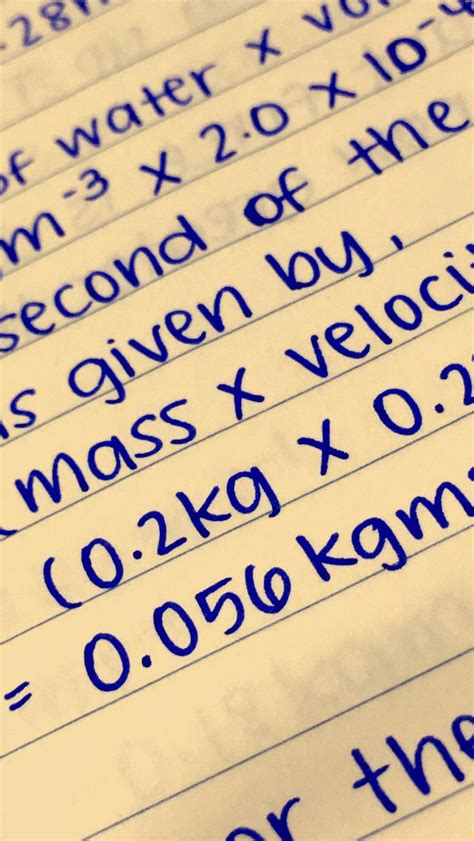 .28
of water x vo
m⁻³ x 2.0 x 10⁻⁴
second of the
is given by,
mass x veloci
(0.2kg x 0.2
= 0.056 kgm
or the